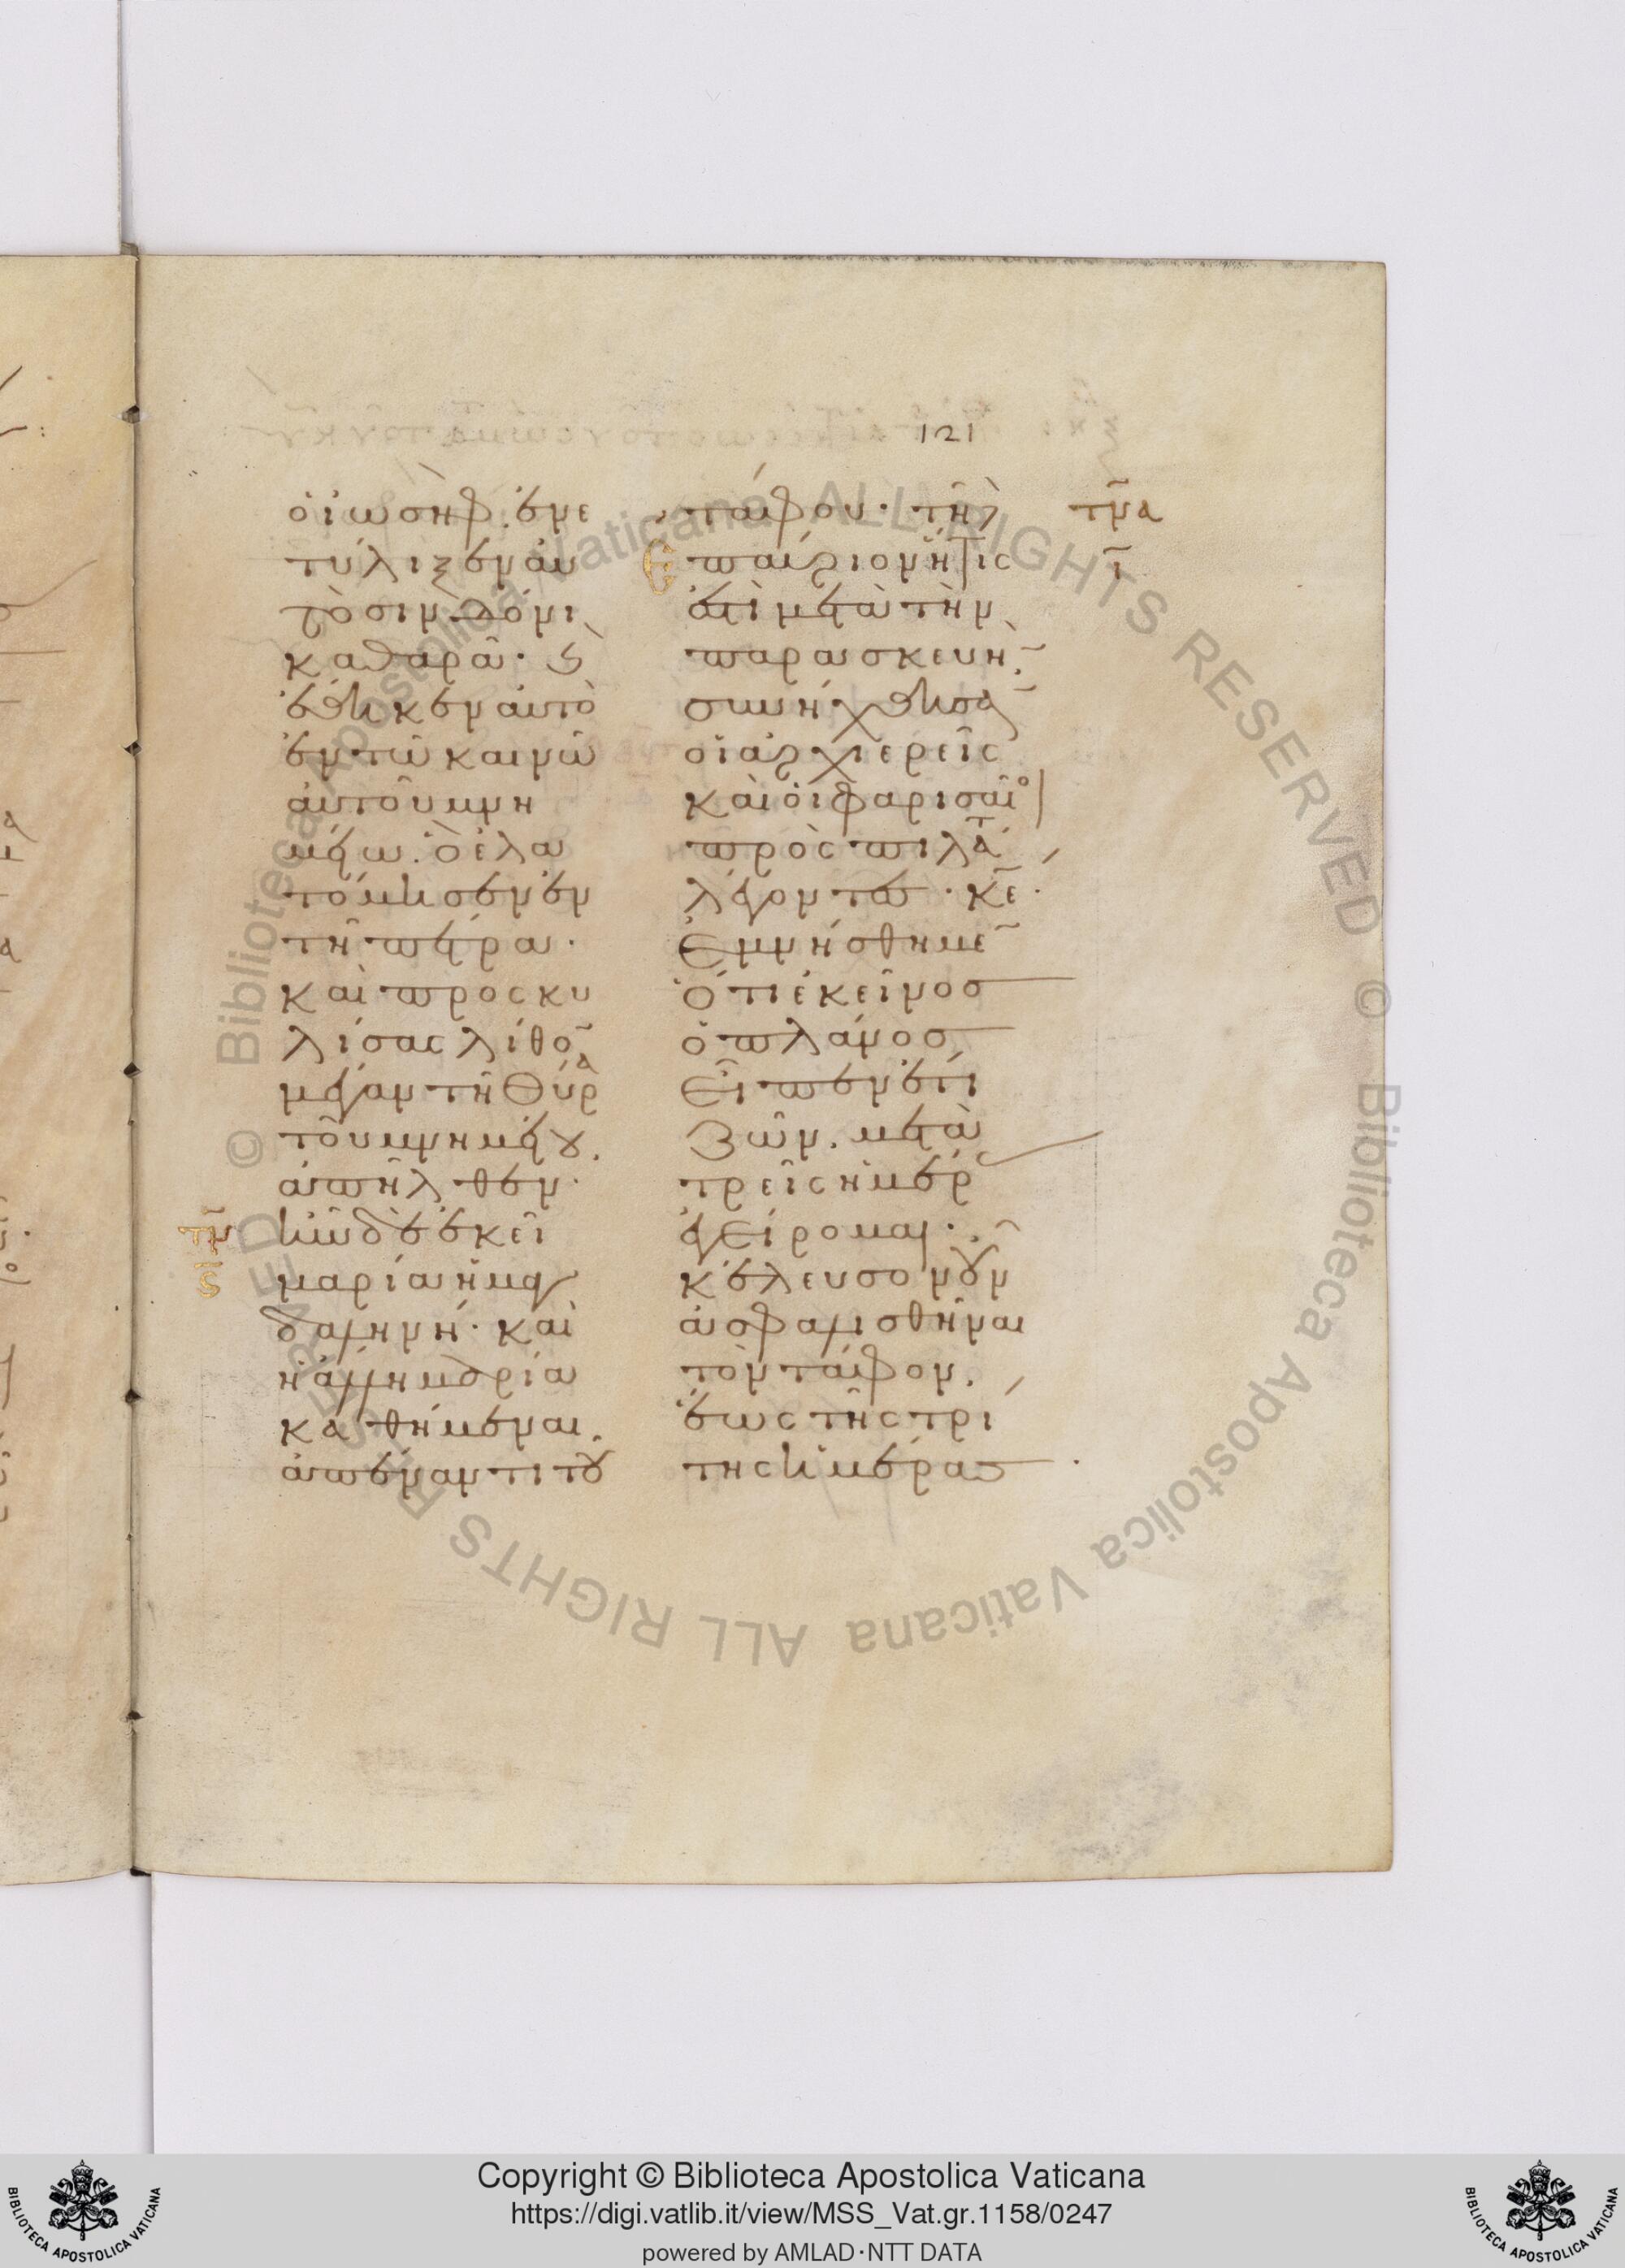 121
ὁ ἰωσὴφ. ἐνε
τύλιξεν αὐ
τὸ σινδόνι
καθαρᾶ· ϗ
ἔθηκεν αὐτὸ
ἐν τῶ καινῶ
αὐτοῦ μνη
μείω. ὃ ἐλα
τόμησεν ἐν
τῆ πέτρα.
καὶ προσκυ
λίσας λίθο̄
μέγαν τῆ θύρα
τοῦ μνημείου.
ἀπῆλθεν.
τμ̄ ἦν δὲ ἐκεῖ
ϛ̄ μαρία ἡ μαγ
δαληνή· καὶ
ἡ ἄλλη μαρία
καθήμεναι.
ἀπέναντι τοῦ
τάφου· τῆ τμ̄α
Ἐπαύριον ἥτις ῑ
ἐστὶ μετὰ τὴν
παρασκευή̄.
συνήχθησᾱ
οἱ ἀρχιερεῖς
καὶ οἱ φαρισαῖοι
πρὸς πιλᾶτ
λέγοντες· κ̄ε.
Ἐμνήσθημε̄
Ὅτι ἐκεῖνος
ὁ πλάνος
Εἶπεν ἔτι
ζῶν. μετὰ
τρεῖς ἡμέρ
ἐγείρομαι.
κέλευσον οὖν
ἀσφαλισθῆναι
τὸν τάφον.
ἕως τῆς τρί
της ἡμέρας.
© Biblioteca Apostolica Vaticana ALL RIGHTS RESERVED © Biblioteca Apostolica Vaticana ALL RIGHTS RESERVED
Copyright © Biblioteca Apostolica Vaticana
https://digi.vatlib.it/view/MSS_Vat.gr.1158/0247
powered by AMLAD·NTT DATA
BIBLIOTECA APOSTOLICA VATICANA
BIBLIOTECA APOSTOLICA VATICANA